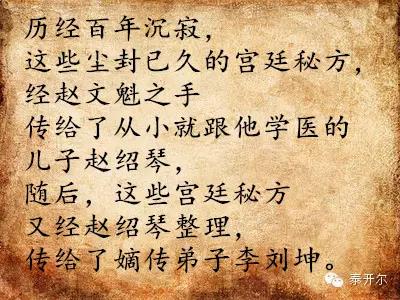 历经百年沉寂，
这些尘封已久的宫廷秘方，
经赵文魁之手
传给了从小就跟他学医的
儿子赵绍琴，
随后，这些宫廷秘方
又经赵绍琴整理，
传给了嫡传弟子李刘坤。
泰开尔